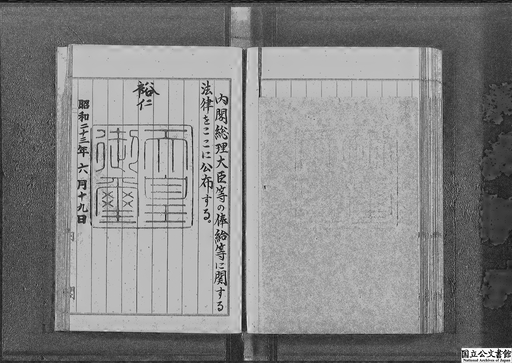 内閣総理大臣等の俸給等に関する
法律をここに公布する。
裕仁
天皇
御璽
昭和二十三年六月十九日
内閣
国立公文書館
National Archives of Japan